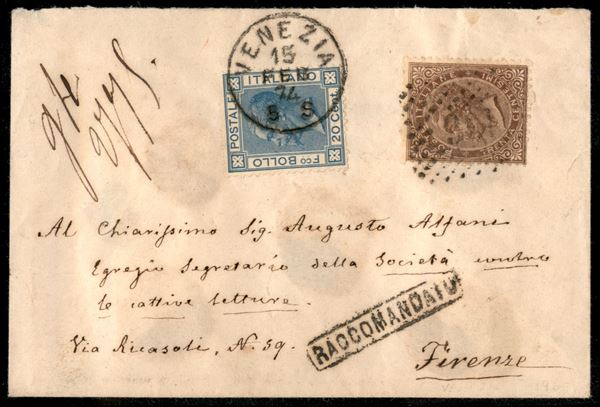 VENEZIA
15
FEB
74
5 S
POSTALE
ITALIANO
20 CENT
FCO BOLLO
Al Chiarissimo Sig. Augusto Alfani
Egregio Segretario della Società contro
le cattive letture.
Via Ricasoli, N. 59.
RACCOMANDATO
Firenze